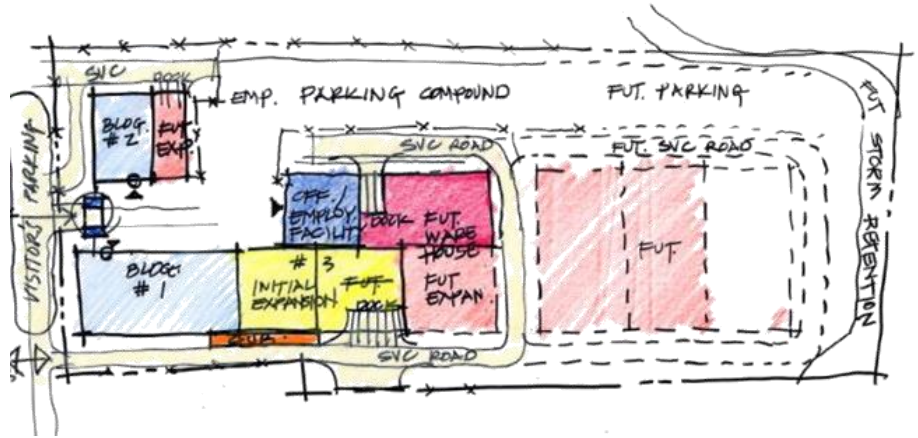 SVC
DOCK
EMP. PARKING COMPOUND
FUT. PARKING
BLDG.
# 2
FUT.
EXP.
VISITOR'S PARKING
SVC ROAD
FUT. SVC ROAD
FUT STORM RETENTION
OFF./
EMPLOY.
FACILITY
DOCK
FUT.
WARE
HOUSE
FUT
EXPAN.
BLDG.
# 1
# 3
INITIAL
EXPANSION
FUT
DOCK
FUT.
SVC ROAD